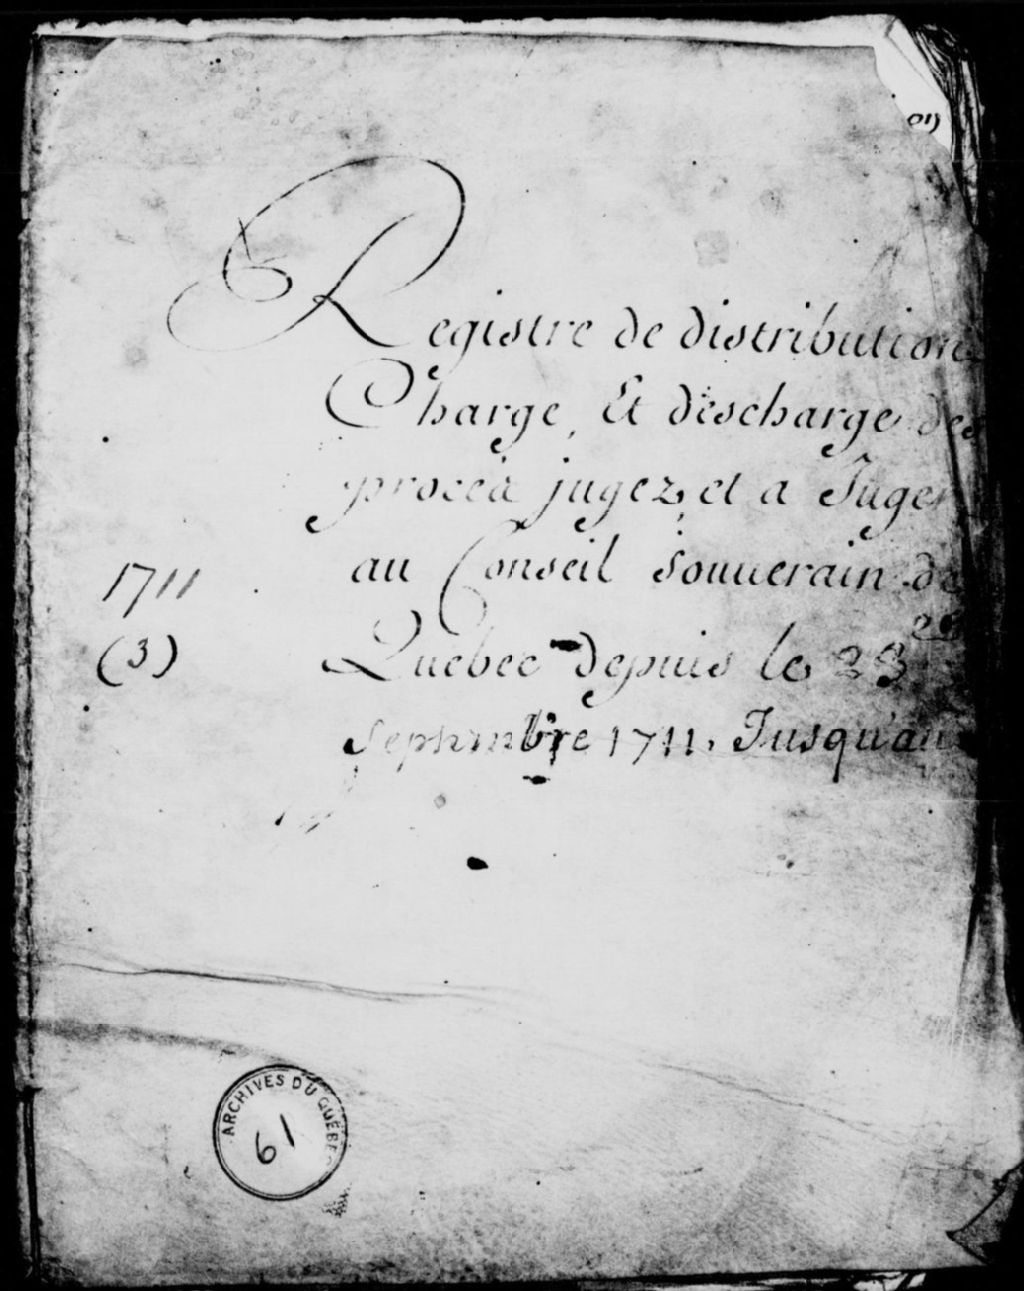 Registre de distribution
Charge, Et descharge des
procés jugez, et a Juger
au Conseil Souuerain de
1711
(3)
Quebec depuis le 23
septembre 1711. Jusqu'au
ARCHIVES DU QUÉBEC
61